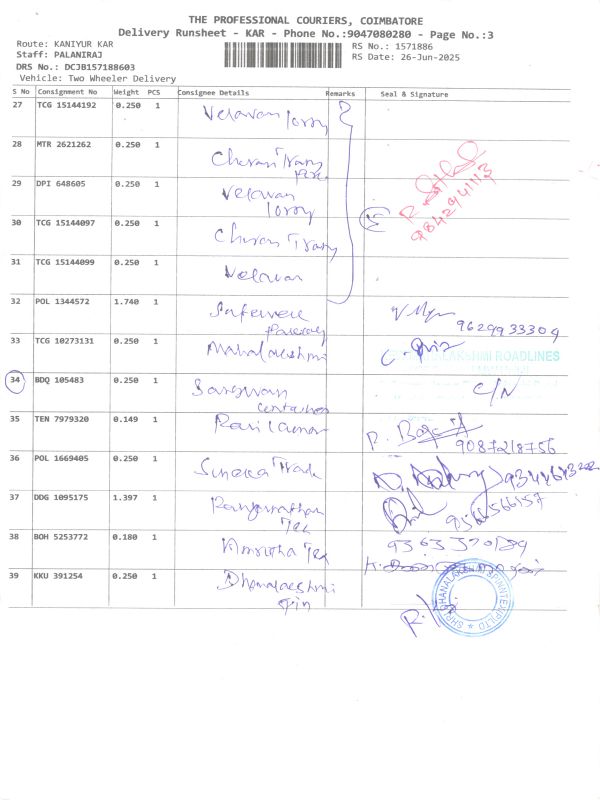 THE PROFESSIONAL COURIERS, COIMBATORE
Delivery Runsheet - KAR - Phone No.:9047080280 - Page No.:3
Route: KANIYUR KAR
RS No.: 1571886
Staff: PALANIRAJ
RS Date: 26-Jun-2025
DRS No.: DCJB157188603
Vehicle: Two Wheeler Delivery
S No Consignment No Weight PCS Consignee Details Remarks Seal & Signature
27 TCG 15144192 0.250 1 Velavan lorry
28 MTR 2621262 0.250 1 Cheran Trans
29 DPI 648605 0.250 1 Velavan lorry
9842941113
30 TCG 15144097 0.250 1 Cheran Trans
31 TCG 15144099 0.250 1 Velavan
32 POL 1344572 1.740 1
9629933309
33 TCG 10273131 0.250 1 Mahalakshmi
LAKSHMI ROADLINES
34 BDQ 105483 0.250 1 C/N
35 TEN 7979320 0.149 1 Ravikumar
9087218756
36 POL 1669405 0.250 1
37 DDG 1095175 1.397 1 Ranganathar Tex
9566566157
38 BOH 5253772 0.180 1 Amrutha Tex
39 KKU 391254 0.250 1 Dhanalakshmi Spin